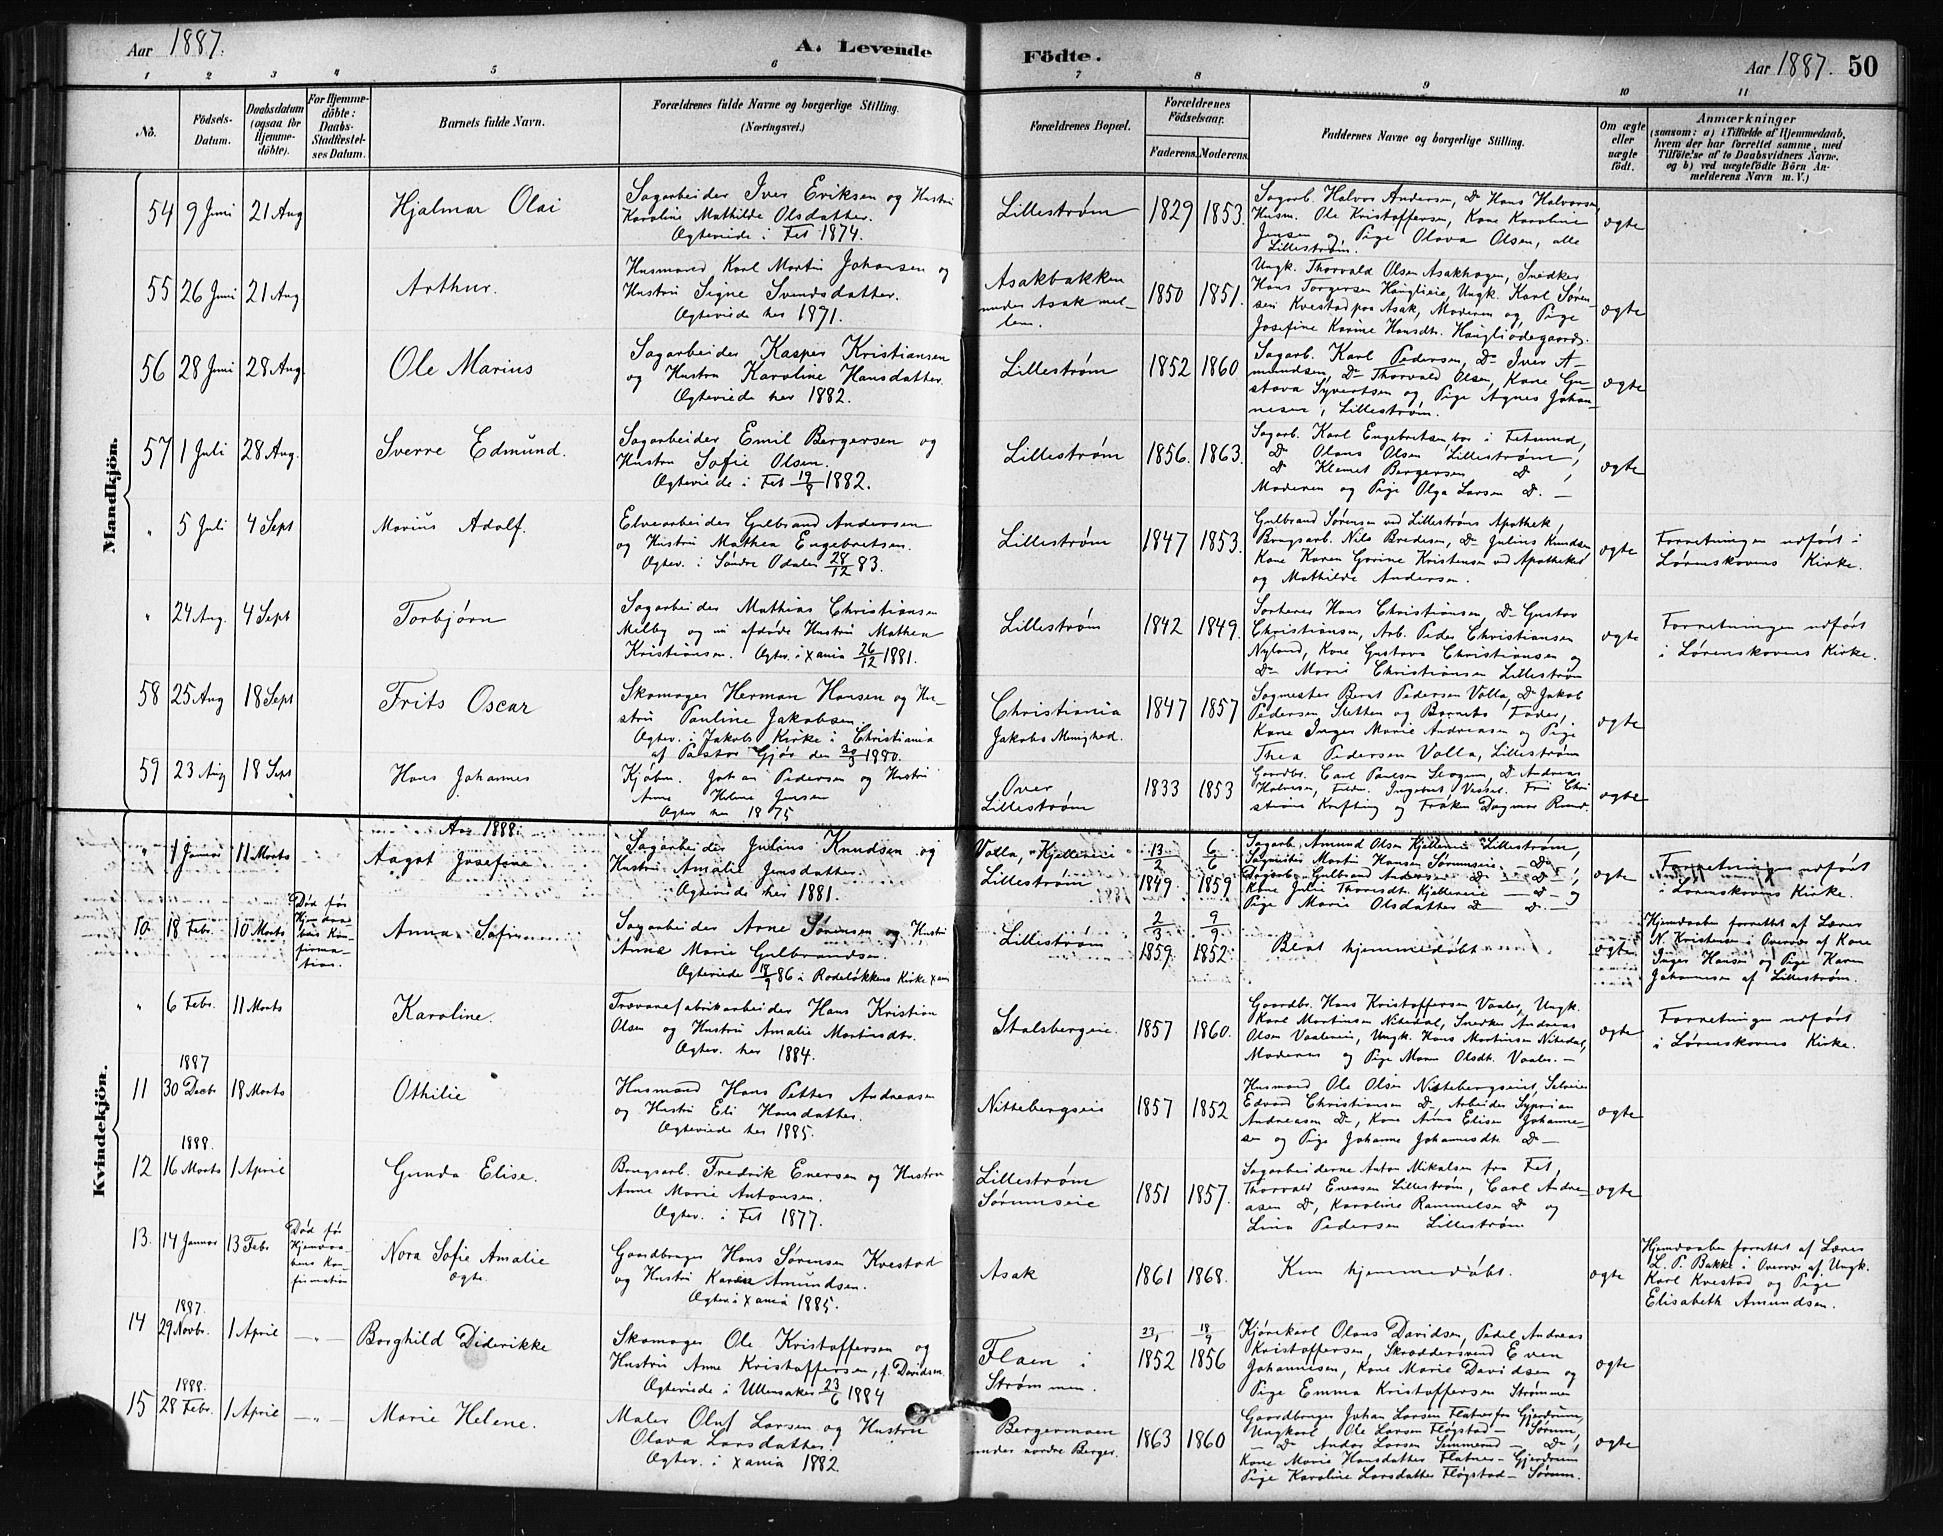 Aar 1887.
A. Levende Födte.
Aar 1887. 50
1 2 3 4 5 6 7 8 9 10 11
No.
Födsels-Datum.
Daabsdatum (ogsaa for Hjemme-döbte).
For Hjemme-döbte: Daabs-Stadfæstel-ses Datum.
Barnets fulde Navn.
Forældrenes fulde Navne og borgerlige Stilling. (Næringsvei.)
Forældrenes Bopæl.
Forældrenes Födselsaar.
Faderens. Moderens.
Faddernes Navne og borgerlige Stilling.
Om ægte eller uægte födt.
Anmærkninger
(saasom: a) i Tilfælde af Hjemmedaab, hvem der har forrettet samme, med Tilföielse af to Daabsvidners Navne, og b) ved uægtefödte Börn An-melderens Navn m. V.)
Mandkjön.
54 9 Juni 21 Aug Hjalmar Olai
Sagarbeider Iver Eriksen og Hustru
Karoline Mathilde Olsdatter.
Ægteviede i Fet 1874.
Lillestrøm 1829 1853.
Sagarb. Halvor Andersen, Do Hans Halvorsen
Husm. Ole Kristoffersen, Kone Karoline
Jensen og Pige Olava Olsen, alle
Lillestrøm.
ægte
55 26 Juni 21 Aug Arthur.
Husmand Karl Martin Johansen og
Hustru Signe Svendsdatter.
Ægteviede her 1871.
Asakbakken
under Asak mel-
lem.
1850 1851.
Ungk. Thorvald Olsen Asakhagen, Snedker
Hans Torgersen Haugli͏eie, Ungk. Karl Søren-
sen Kvestad paa Asak, Moderen og Pige
Josefine Karine Hansdt. Haugliødegaard.
ægte
56 28 Juni 28 Aug. Ole Marius
Sagarbeider Kasper Kristiansen
og Hustru Karoline Hansdatter.
Ægteviede her 1882.
Lillestrøm 1852 1860
Sagarb. Karl Pedersen, Do Iver A-
mundsen, Do Thorvald Olsen, Kone Gu-
stava Syvertsen og Pige Agnes Johan-
nesen, Lillestrøm.
ægte
57 1 Juli 28 Aug. Sverre Edmund.
Sagarbeider Emil Bergersen og
Hustru Sofie Olsen.
Ægteviede i Fet 19/8 1882.
Lillestrøm 1856. 1863.
Sagarb. Karl Engebretsen bor i Fetsund,
Do Olaus Olsen Lillestrøm,
Do Klemet Bergersen, Do
Moderen og Pige Olga Larsen Do. —
ægte
" 5 Juli 4 Sept Marius Adolf.
Elvearbeider Gulbrand Andersen
og Hustru Mathea Engebretsen.
Ægtev. i Søndre Odalen 28/12 83.
Lillestrøm 1847 1853.
Gulbrand Sørensen ved Lillestrøms Apothek,
Brugsarb. Nils Bredesen, Do Julius Knudsen,
Kone Karen Gorine Kristensen ved Apotheket
og Mathilde Andersen.
ægte
Forretningen udført i
Lørenskovens Kirke.
" 24 Aug. 4 Sept Torbjørn
Sagarbeider Mathias Christiansen
Melby og nu afdøde Hustru Mathea
Kristiansen. Ægtev. i Xania 26/12 1881.
Lillestrøm 1842 1849.
Sorterer Hans Christiansen, Do Gustav
Christiansen, Arb. Peder Christiansen
Nyland, Kone Gustava Christiansen og
Do Marie Christiansen Lillestrøm
ægte
Forretningen udført
i Lørenskovens Kirke.
58 25 Aug 18 Sept Frits Oscar
Skomager Herman Hansen og Hu-
stru Pauline Jakobsen.
Ægtev. i Jakobs Kirke i Christiania
af Pastor Gjør den 1880.
Christiania
Jakobs Menighed.
1847 1857
Sagmester Bernt Pedersen Volla, Do Jakob
Pedersen Sletten og Barnets Fader,
Kone Inger Marie Andreasen og Pige
Thea Pedersen Volla, Lillestrøm
ægte
59 23 Aug 18 Sept Hans Johannes
Kjøbm. Johan Pedersen og Hustru
Anne Helene Jensen
Ægtev her 1875
Over
Lillestrøm
1833 1853
Gaardbr. Carl Paulsen Skogum, Do Andreas
Halvorsen, Fuldm. Ingebret Vessel, Fru Chri
stiane Krafting og Frøken Dagmar Rund.
ægte
Aar 1888.
Kvindekjön.
" 1 Januar 11 Marts Aagot Josefine
Sagarbeider Julius Knudsen og
Hustru Amalie Jensdatter.
Ægteviede her 1881.
Volla, Kjellereie
Lillestrøm
13/2 1849. 6/6 1859
Sagarb. Amund Olsen Kjellereie Lillestrøm,
Sagmester Martin Hansen Sørumseie — Do
Sagarb. Gulbrand Andersen Do — Do,
Kone Julie Thorsdt. Kjellereie — Do — og
Pige Marie Olsdatter Do — Do. —
ægte
Forretningen udført
i Lørenskovens Kirke.
10. 18 Febr. 10 Marts
Død før
Hjemdaa-
bens Kon-
firma-
tion.
Anna Sofie
Sagarbeider Arne Sørensen og Hustru
Anne Marie Gulbrandsen.
Ægteviede 19/9 86 i Rodeløkkens Kirke Xania
Lillestrøm
2/3 1859. 9/9 1852.
Blot hjemmedøbt.
ægte
Hjemdaaben forrettet af Lærer
N. Kristensen i Overvær af Kone
Inger Hansen og Pige Karen
Johannesen af Lillestrøm.
" 6 Febr. 11 Marts Karoline.
Trævarefabrikarbeider Hans Kristian
Olsen og Hustru Amalie Martinsdtr.
Ægtev. her 1884.
Stalsbergeie. 1857 1860.
Gaardbr. Hans Kristoffersen Vaaler, Ungk.
Karl Martinsen Nitedal, Snedker Andreas
Olsen Vaalereie, Ungk. Hans Martinsen Nitedal,
Moderen og Pige Maren Olsdt. Vaaler. —
ægte
Forretningen udført
i Lørenskovens Kirke.
1887
11 30 Decbr 18 Marts Othilie
Husmand Hans Petter Andreasen
og Hustru Eli Hansdatter.
Ægteviede her 1885.
Nittebergseie 1857 1852
Husmand Ole Olsen Nittebergseiet, Selveier
Edvard Christiansen Do, Arbeider Syprian
Andreasen Do, Kone Anne Elisen Johanne-
sen og Pige Johanne Johannesdt Do —
ægte
1888.
12 16 Marts 1 April Gunda Elise.
Brugsarb. Fredrik Enersen og Hustru
Anne Marie Antonsen.
Ægtev. i Fet 1877.
Lillestrøm
Sørumseie
1851 1857.
Sagarbeiderne Anton Mikalsen fra Fet,
Thorvald Eneasen Lillestrøm, Carl Andre-
asen Do, Karoline Rammelsen Do og
Lina Pedersen Lillestrøm
ægte
13. 14 Januar 13 Febr
Død før
Hjemdaa-
bens Kon-
firmation
Nora Sofie Amalie
ægte.
Gaardbruger Hans Sørensen Kvestad
og Hustru Karen Amundsen.
Ægtev i Xania 1885.
Asak 1861 1868.
Kun hjemmedøbt.
ægte
Hjemdaaben forrettet af Lærer
L. P. Bakke i Overvær af Ungk.
Karl Kvestad og Pige
Elisabeth Amundsen.
1887.
14 29 Novbr. 1 April — " — Borghild Diderikke
Skomager Ole Kristoffersen og
Hustru Anne Kristoffersen, f. Davidsen.
Ægteviede i Ullensaker 23/6 1884
Flaen i
Strømmen.
1852 18/9 1856
Kjørekarl Olaus Davidsen, Pedel Andreas
Kristoffersen, Skræddersvend Even
Johannesen, Kone Marie Davidsen og
Pige Emma Kristoffersen Strømmen
ægte
1888.
15 28 Febr. 1 April — " — Marie Helene.
Maler Oluf Larsen og Hustru
Olava Larsdatter.
Ægtev. i Xania 1882
Bergermoen
under nordre Berger.
1863 1860
Gaardbruger Johan Larsen Flatner fra Gjerdrum,
Ungkarl Ole Larsen Fløgstad — Sørum,
— Do Anders Larsen — Do,
Kone Marie Hansdatter Flatner — Gjerdrum
Pige Karoline Larsdatter Fløgstad — Sørum.
ægte